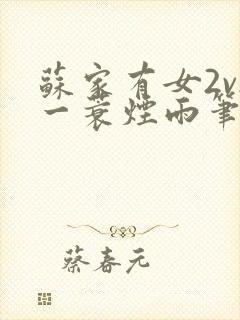 蘇家有女2v
一蓑煙雨筆
蔡春元